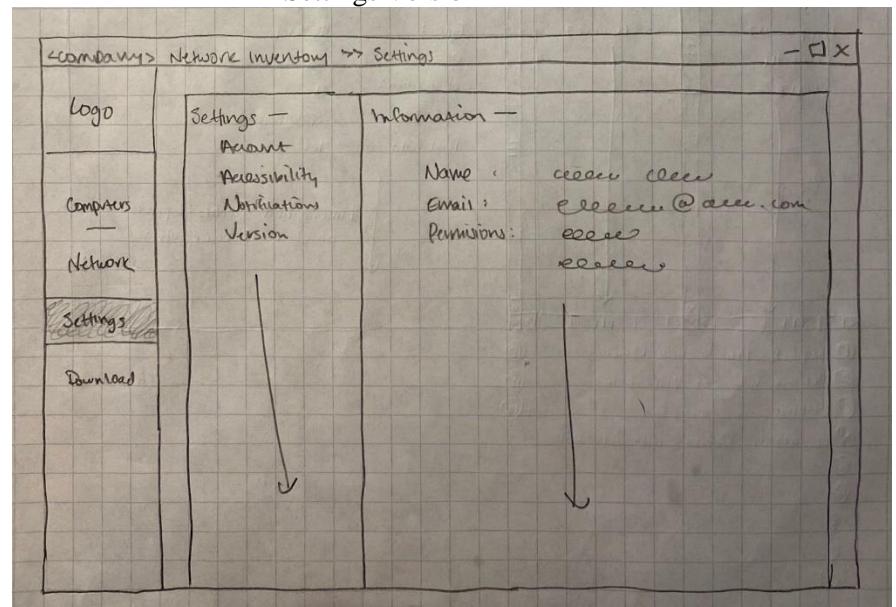 <company> Network Inventory >> Settings
- □ X
Logo
Computers
Network
Settings
Download
Settings —
Account
Accessibility
Notifications
Version
Information —
Name :
Email : @ .com
Permisions: